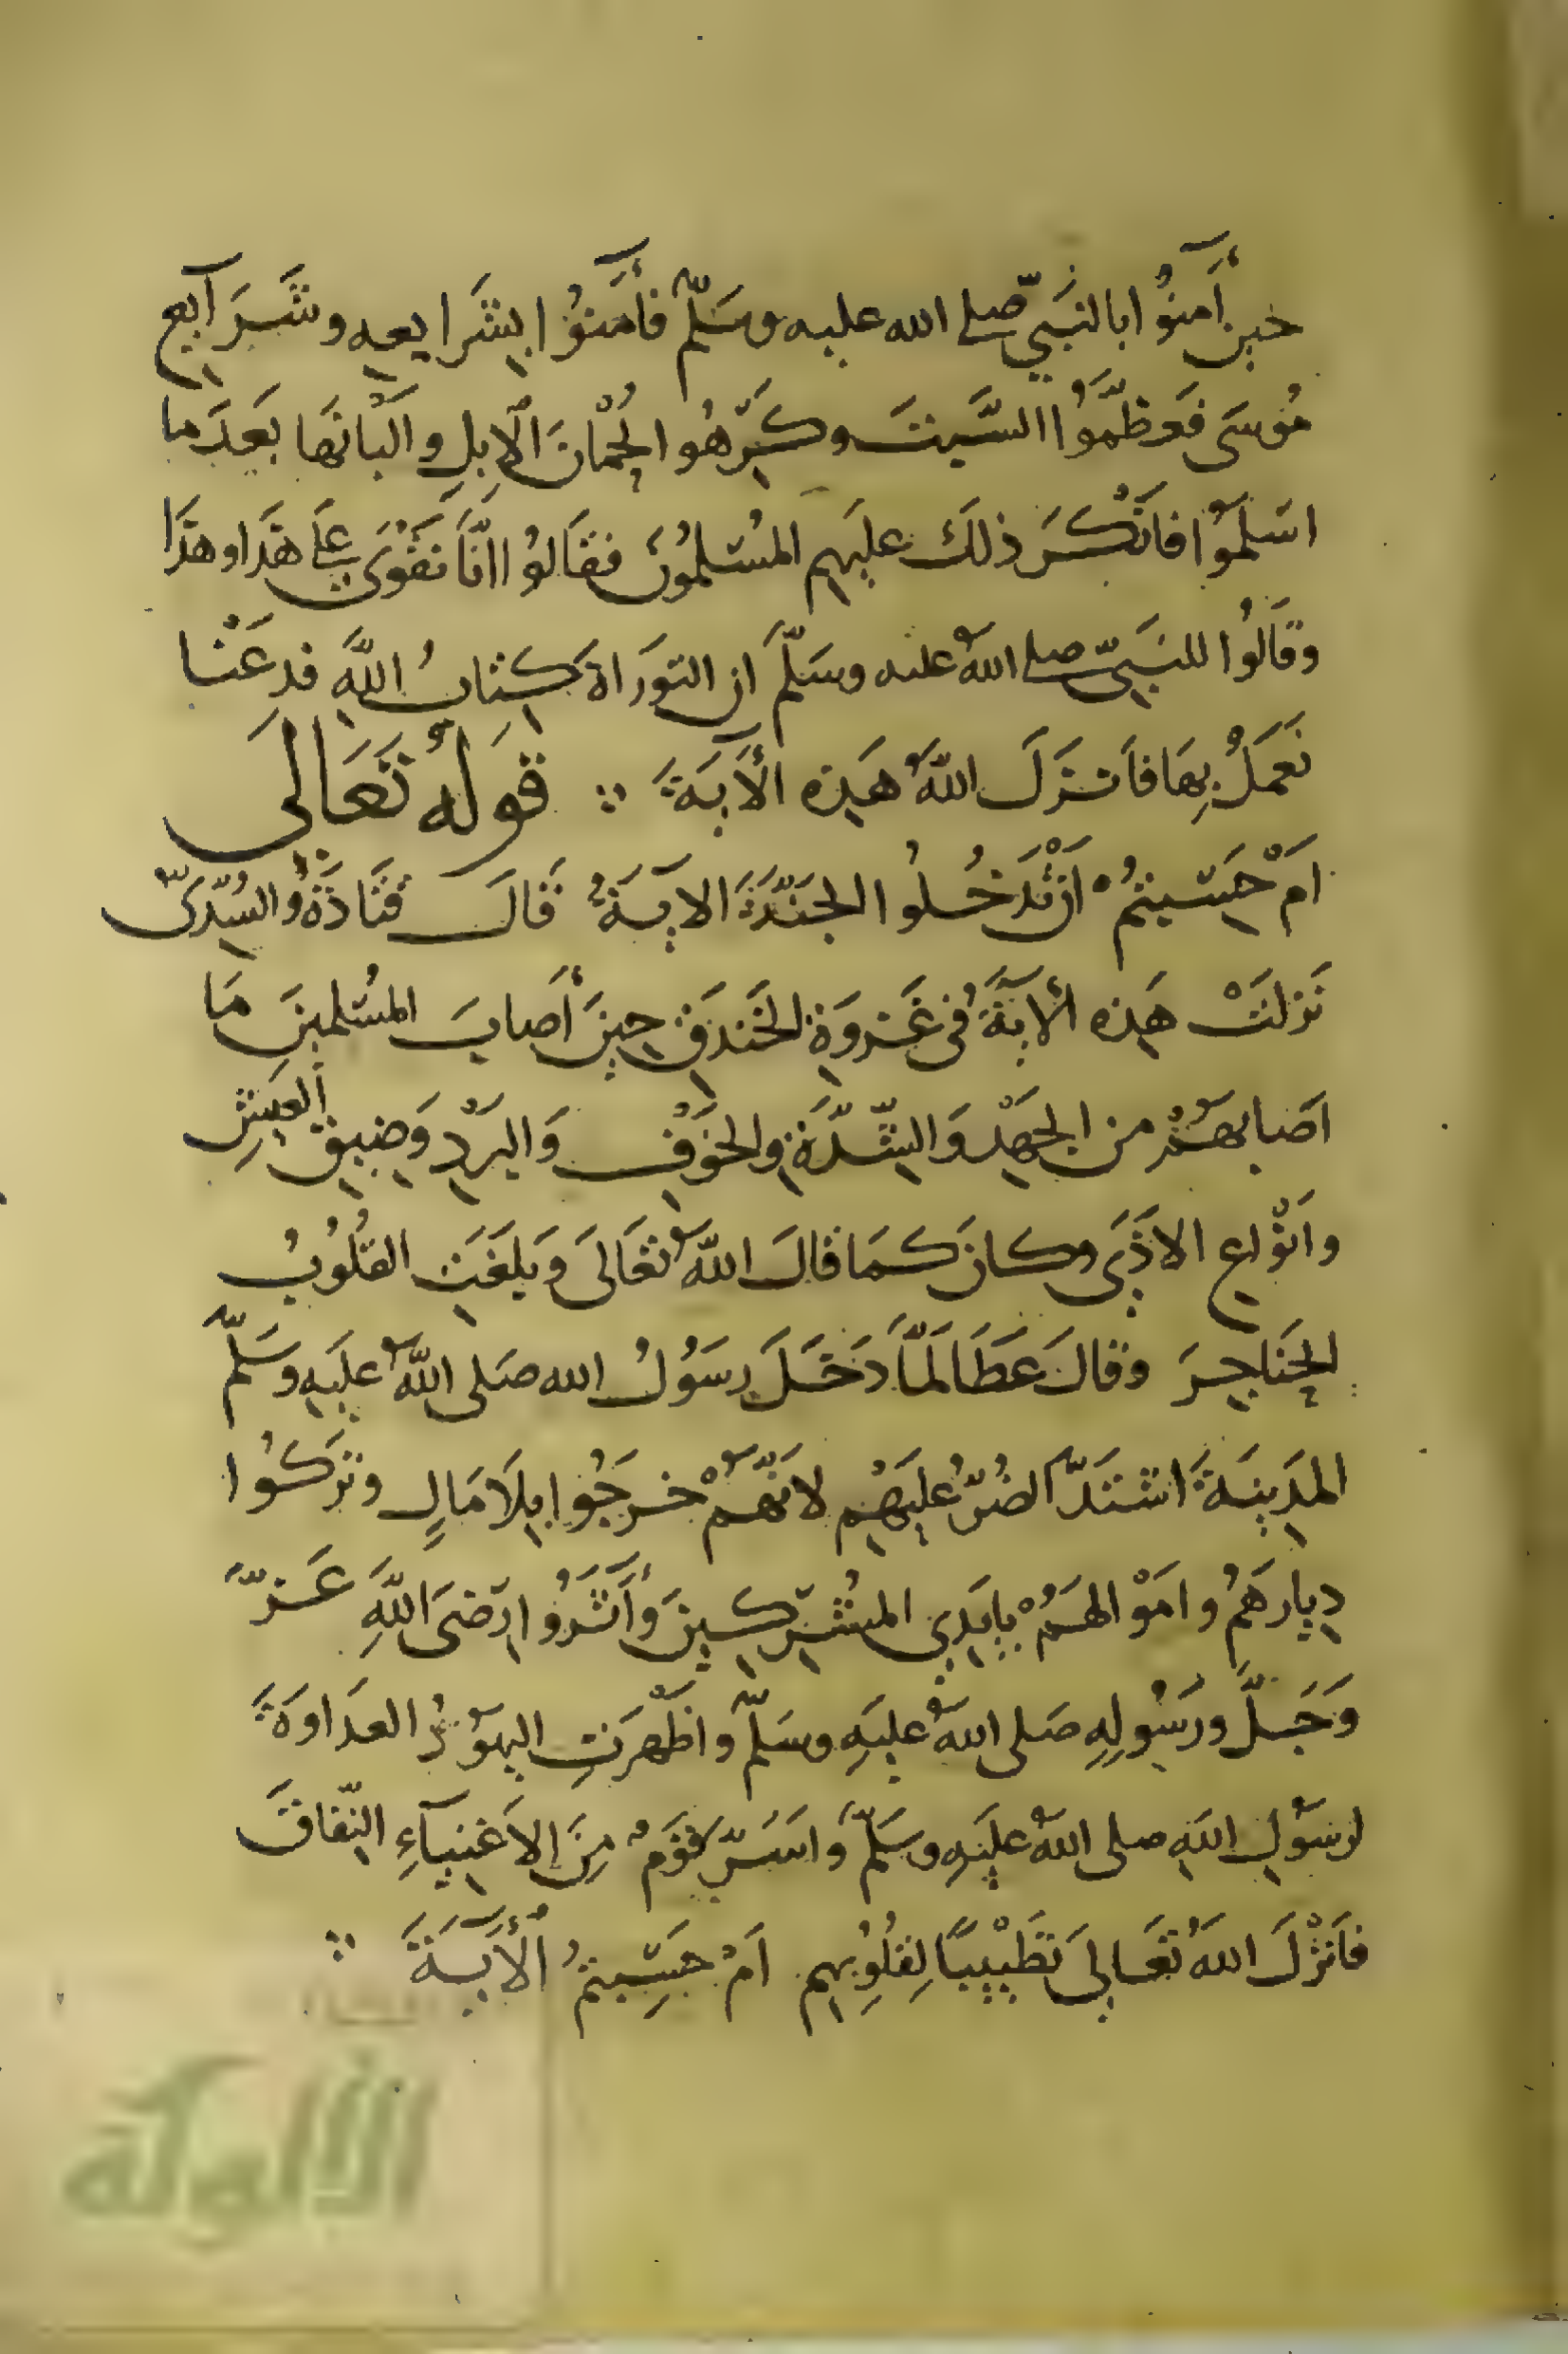 حين أَمنُوا بالنَبيّ صلى الله عليه وسَلّم فأَمنُوا بِشَرايعِهِ وشَرَايع
مُوسَى فَعَظَّموُا السَّبت وكَرّهُوا لُحْمانَ الاِبلِ وَالْبَانَهَا بَعدَ مَا
اسَلَموُا فَانْكَرَ ذلكَ عليَهِم المُسْلِمُونَ فقَالوُا انَّا نَقْوَى على هَذا وهذَا
وقَالُوا للنَبيّ صلى اللهُ عليه وسَلّمَ ان التورَاةَ كِتابُ اللَّهِ فدعْنا
نَعمَلْ بِهَا فاَنزَلَ اللّهُ هَذِه الأَيَةَ ؞ قَولهُ تَعَالىَ
امَ حَسِبتُمْ اَنْ تَدْخُلُوا الجَنَّةَ الآيَةُ قَالَ قَتَادَةُ والسُّدّىّ
نَزلَتْ هَذِه الأَيَةُ فى غَزوَةِ الخَندَقِ حِينَ أَصابَ المُسْلِمينَ مَا
اصَابَهُمْ من الجَهْدِ وَالشّدَّةِ والخَوْفِ وَالبَرْدِ وَضِيقِ العَيشِ
وانْوَاعِ الاذَى وكانَ كمَا قَالَ اللّهُ تعَالىَ وَبلَغَتِ القُلُوبُ
الحَناجِرَ وقالَ عَطَا لَمَّا دَخَلَ رسَوُلُ الله صَلى اللّهُ عليَهِ وسَلّم
المَدِينَةَ اشتَدَّ الضُرُّ عليَهِم لاَنّهُمْ خَرجُوا بِلاَ مَالٍ وتَركُوا
دِيارهَمُ وامَوْالهَمُْ بِايَدِي المُشْرِكِينَ وأَثَرُوا رِضَى اللَّهِ عَزّ
وَجَلَّ ورَسُولِهِ صَلى اللهُ عليَهِ وسَلّم وَاظْهرَتِ اليهَوُدُ العدَاوَةَ
لرسُوْلِ اللهِ صلى اللهُ عليَهِ وسَلّم وَاسَرّ قَومُ مِنَ الاَغنِيآءِ النّفاقَ
فاَنْزلَ اللهُ تعَالىَ تَطْيِيبًا لِقُلوُبِهِم اَمْ حَسِبتمُ الأَيَةَ ؞
الألوكة